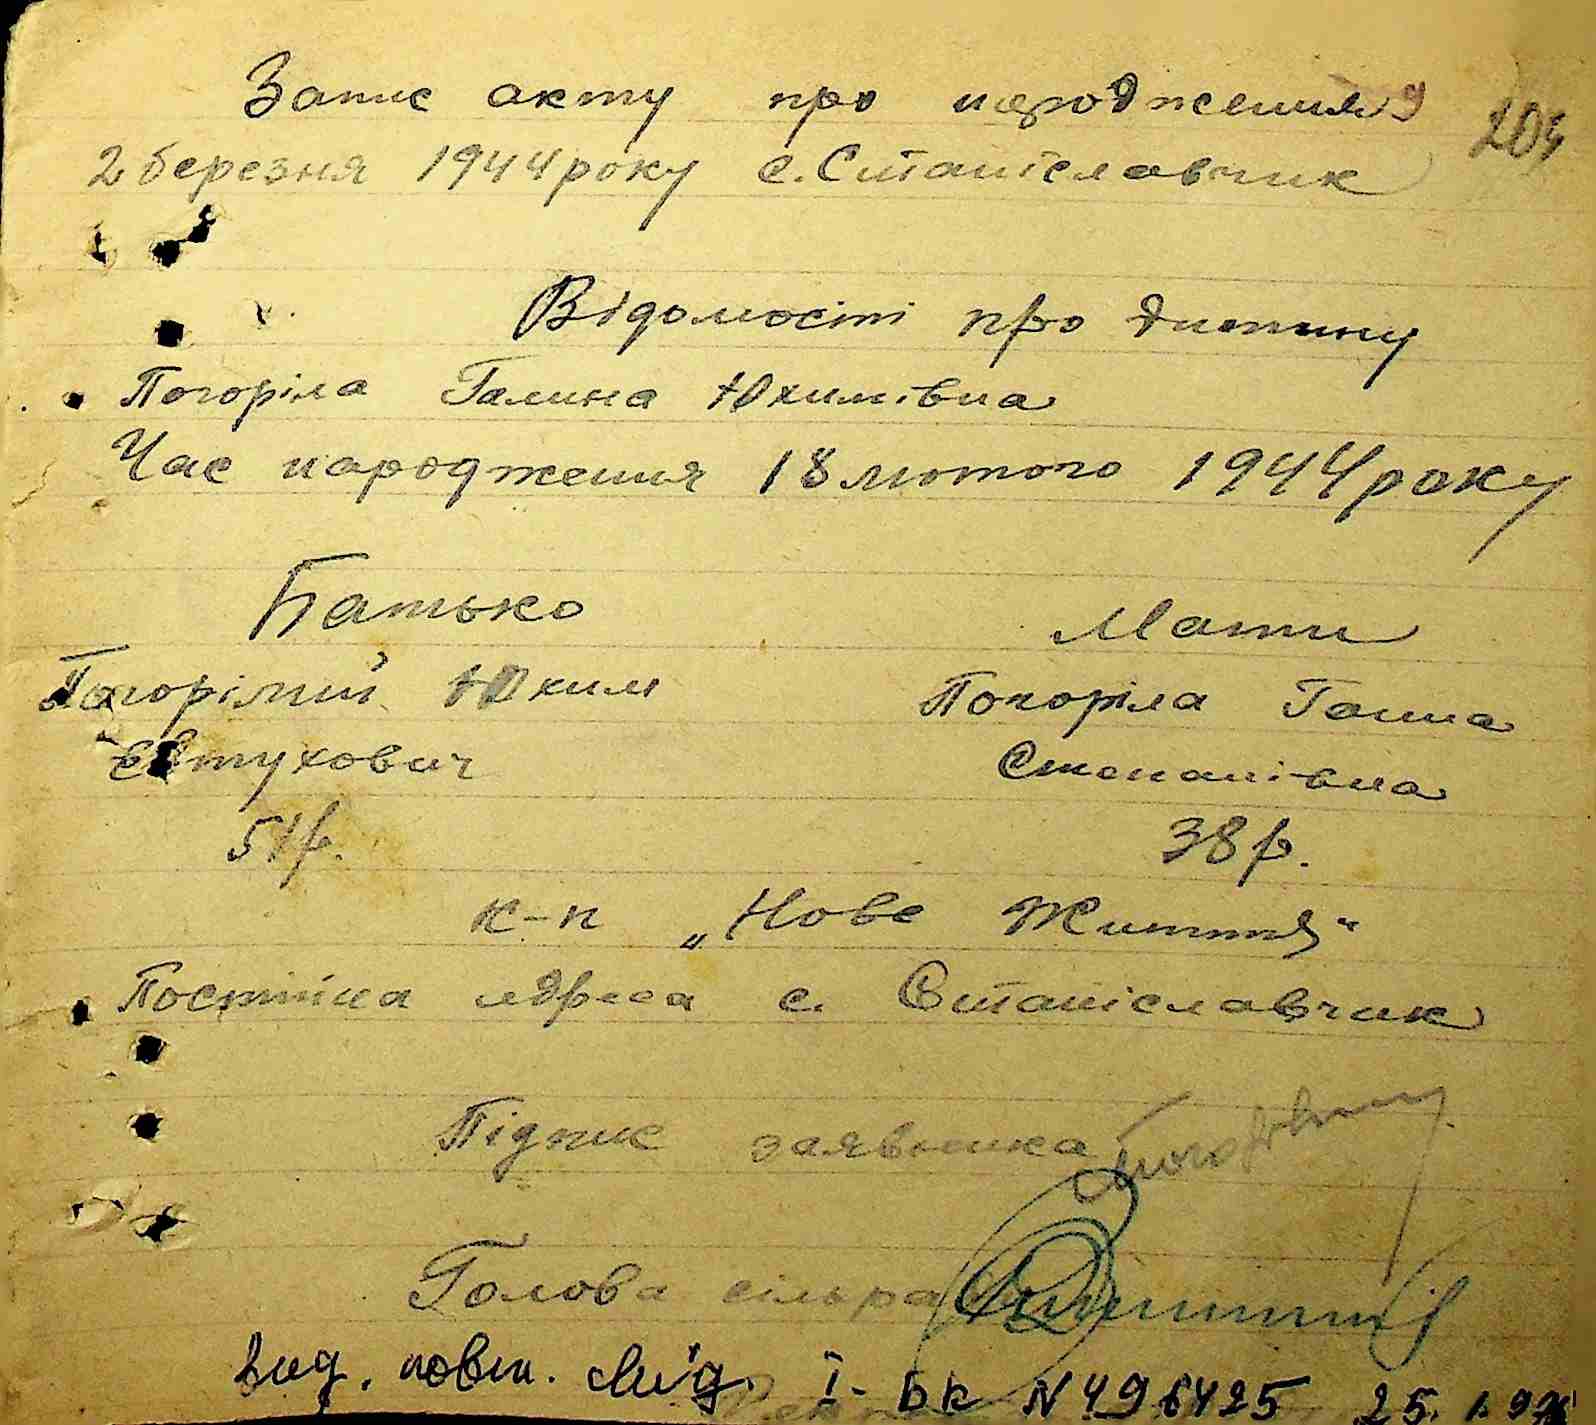 Запис акту про народження 9
204
2 березня 1944 року с. Станіславчик
Відомості про дитину
Погоріла Галина Юхимівна
Час народження 18 лютого 1944 року
Батько Мати
Погорілий Юхим Погоріла Ганна
Євтухович Степанівна
51 р. 38 р.
к-п „Нове Життя"
Постійна адреса с. Станіславчик
Підпис заявника
Голова сільра
вид. повт. свід. І-БК N 496425 25.1.99